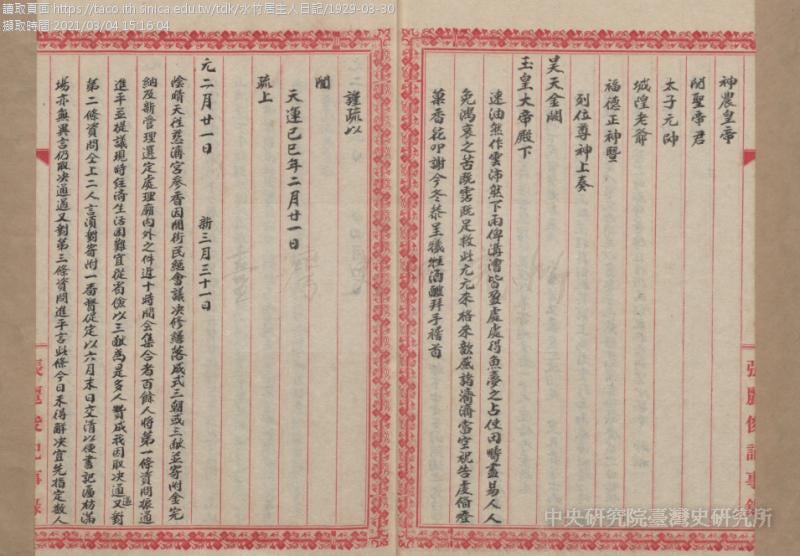 讀取頁面 https://taco.ith.sinica.edu.tw/tdk/水竹居主人日記/1929-03-30
擷取時間 2021/03/04 15:16:04
神農皇帝
関聖帝君
太子元帥
城隍老爺
福德正神暨
列位尊神上奏
昊天金闕
玉皇大帝殿下
速油然作雲沛然下雨俾溝澮皆盈處處得魚夢之占使田疇盡易人人
免鴻哀之苦既霑既足救此元元來格來歆感諸濟濟當空祝告虔備燈
菓香花叩謝今冬恭呈犧牲酒醴拜手稽首
謹疏以
聞
天運己巳年二月廿一日
疏上
元二月廿一日 新三月三十一日
陰晴天往慈濟宮參香因開街民總會議决修繕落成式三朝或三献並寄附金完
納及新管理選定處理廟內外之件近十時間会集合者百餘人將第一條資問振通
進平並提議現時經濟生活困難宜從省儉以三献為是多人賛成我因取决通過又對
第二條資問仝上二人言須對寄附一番督促定以六月末日交清以便書記區枋滿
場亦無異言仍取决通過又對第三條資問進平言此條今日未得解决宜先指定数人
張麗俊記事錄
張麗俊記事錄
中央研究院臺灣史研究所